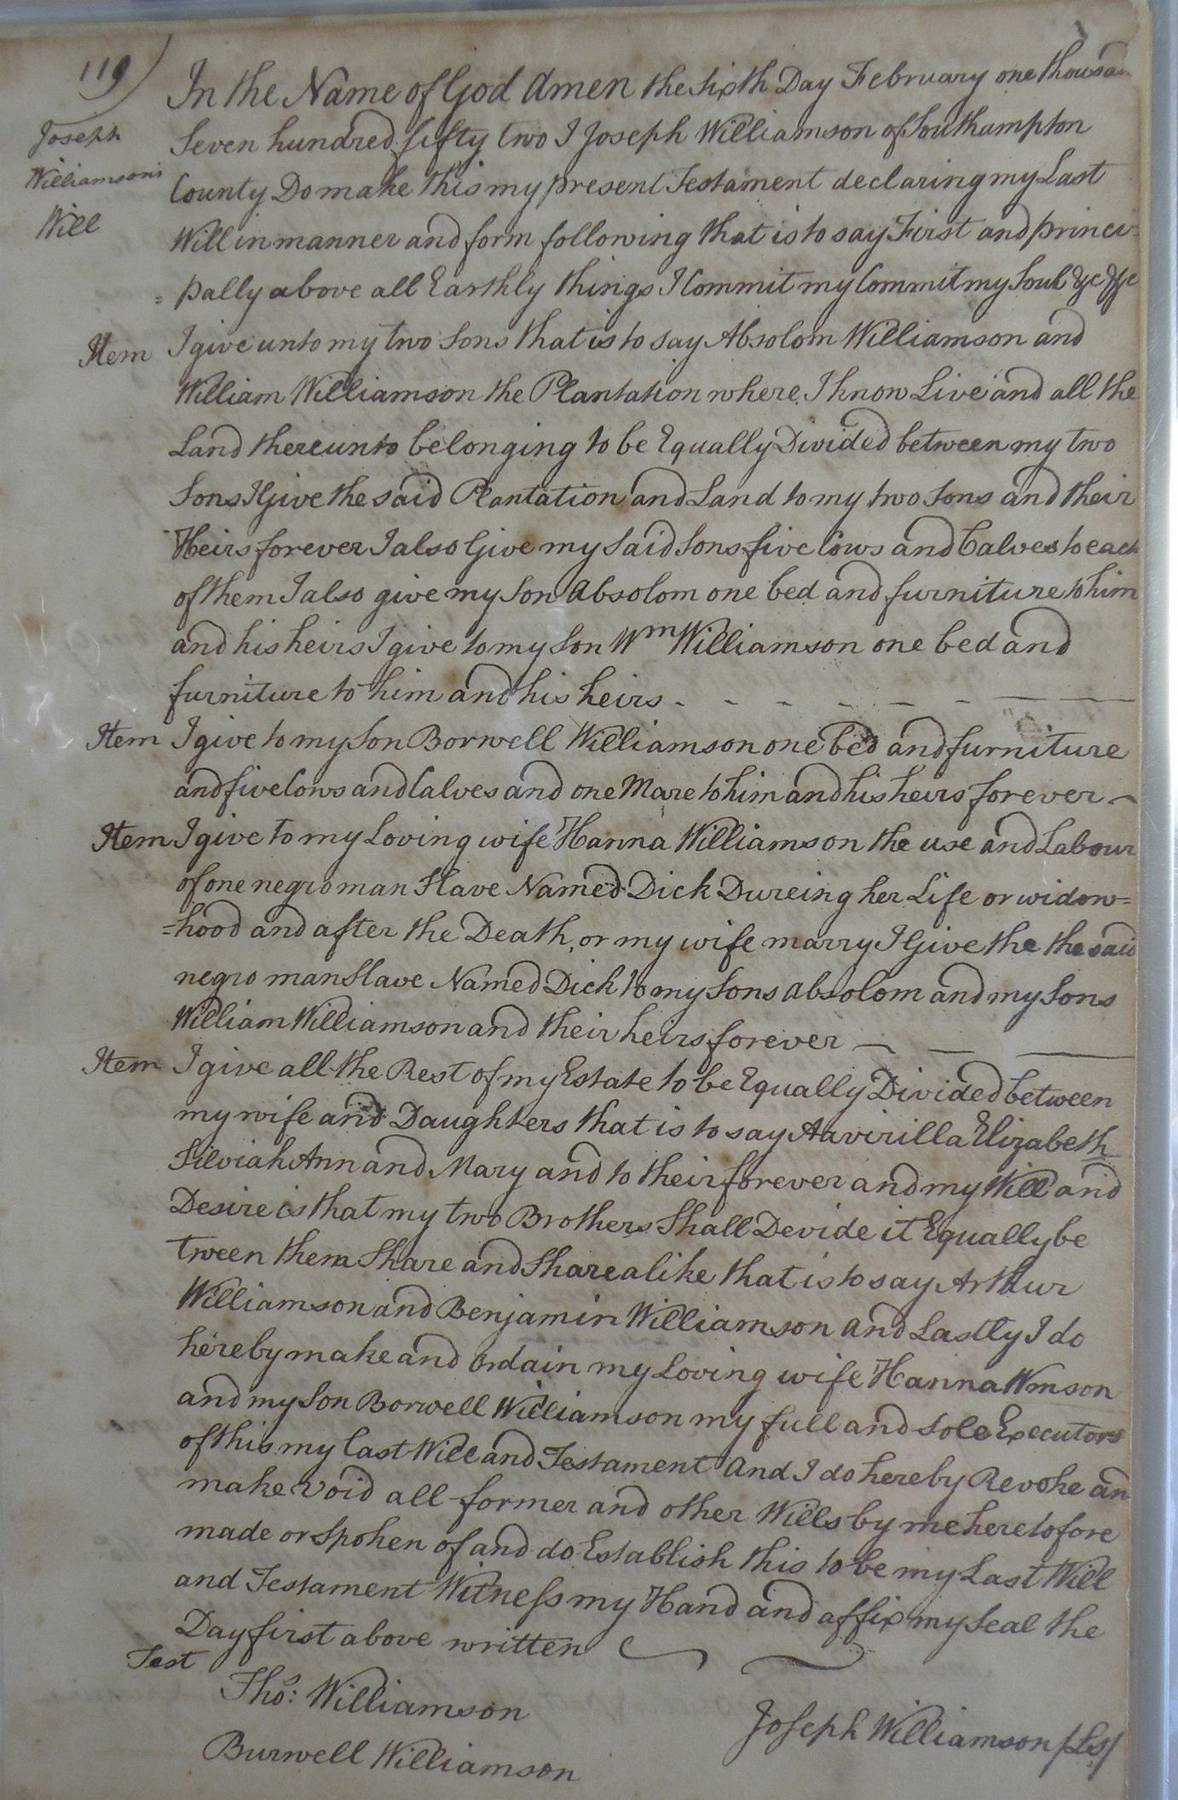 119)
Joseph
Williamson's
Will
In the Name of God Amen the Sixth Day February one thousan
Seven hundred fifty two I Joseph Williamson of Southampton
County Do make this my present Testament declaring my Last
Will in manner and form following that is to say First and princi
= pally above all Earthly things I Commit my Commit my Soul &c &c
Item I give unto my two Sons that is to say Absolom Williamson and
William Williamson the Plantation where I know Live and all the
Land thereunto belonging to be Equally Divided between my two
Sons I Give the said Plantation and Land to my two Sons and their
Heirs forever I also Give my Said Sons five Cows and Calves to each
of them I also give my Son Absolom one bed and furniture to him
and his heirs I give to my Son Wm Williamson one bed and
furniture to him and his heirs - - - - - -
Item I give to my Son Borwell Williamson one bed and furniture
and five Cows and Calves and one Mare to him and his heirs forever -
Item I give to my Loving wife Hanna Williamson the use and Labour
of one negro man Slave Named Dick Dureing her Life or widow=
=hood and after the Death, or my wife marry I Give the the said
negro man Slave Named Dick to my Sons Absolom and my Sons
William Williamson and their heirs forever - - -
Item I give all the Rest of my Estate to be Equally Divided between
my wife and Daughters that is to say Aavirilla Elizabeth
Silviah Ann and Mary and to their forever and my Will and
Desire is that my two Brothers Shall Devide it Equally be
tween them Share and Share alike that is to say Arthur
Williamson and Benjamin Williamson and Lastly I do
hereby make and ordain my Loving wife Hanna Wmson
and my Son Borwell Williamson my full and Sole Executors
of this my Last Will and Testament And I do hereby Revoke an
make void all former and other Wills by me heretofore
made or Spoken of and do Establish this to be my Last Will
and Testament Witness my Hand and affix my Seal the
Day first above written
Test
Thos: Williamson
Joseph Williamson /Ls/
Burwell Williamson